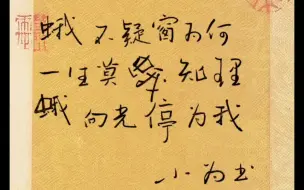 蛾不疑窗为何
一生莫 知理
蛾向光停为我
小为书